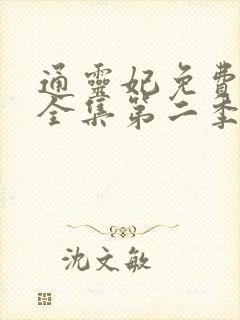 通靈妃免費
全集第二季
沈文敏